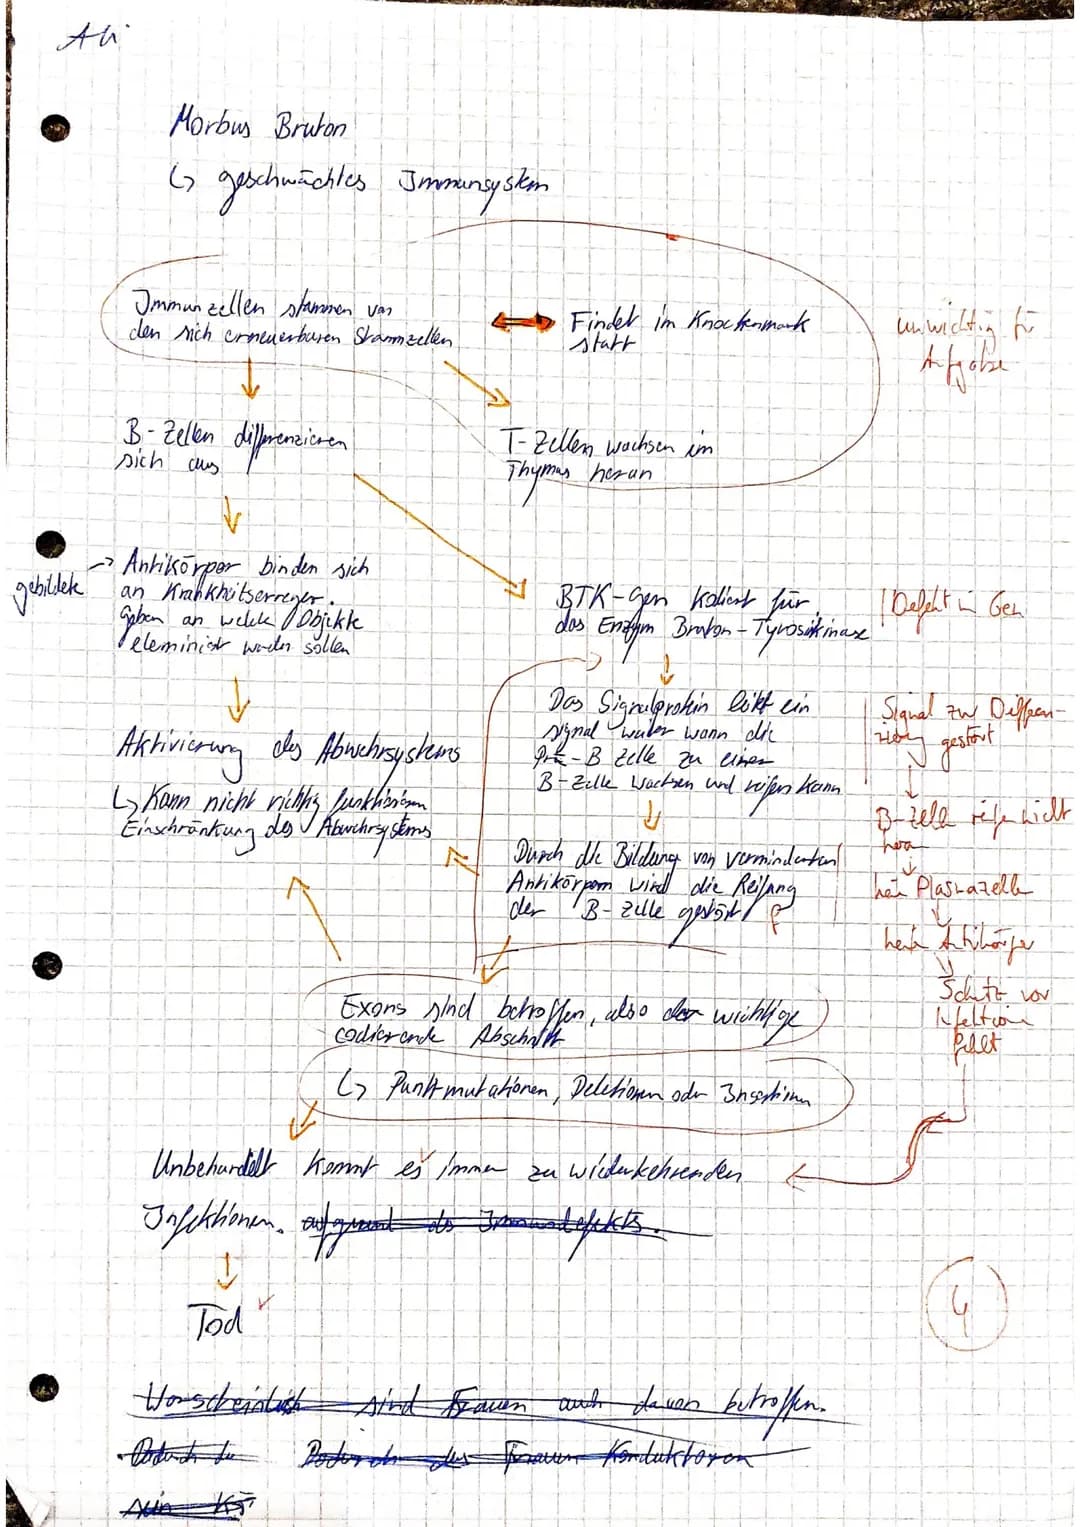 Ali
Morbus Bruton
↳ geschwächtes Immunsystem
Immunzellen stammen von
den sich erneuerbaren Stammzellen
Findet im Knochenmark
statt
unwichtig für
Aufgabe
B-Zellen differenzieren
sich aus
T-Zellen wachsen im
Thymus heran
gebildet
→ Antikörper binden sich
an Krankheitserreger.
Geben an welche Objekte
eleminiert werden sollen
BTK-Gen Kodiert für
das Enzym Bruton-Tyrosinkinase
Defekt in Gen
Das Signalprotein leitet ein
signal weiter wann die
Prä-B Zelle zu einer
B-Zelle wachsen und reifen kann
Signal zur Differen-
zierung gestört
Aktivierung des Abwehrsystems
↳ Kann nicht richtig funktionieren
Einschränkung des Abwehrsystems
B-Zelle reifen nicht
heran
Durch die Bildung von verminderten
Antikörpern wird die Reifung
der B-Zelle gestört f
kein Plasmazelle
kein Antikörper
Schutz vor
Infektion
fehlt
Exons sind betroffen, also der wichtige
codierende Abschnitt
↳ Punktmutationen, Deletionen oder Insertionen
Unbehandelt kommt es immer zu wiederkehrenden
Infektionen. aufgrund des Immundefekts.
Tod
4
Warscheinlich sind Frauen auch davon betroffen.
Dadurch die Dadurch das Frauen Konduktoren
sein